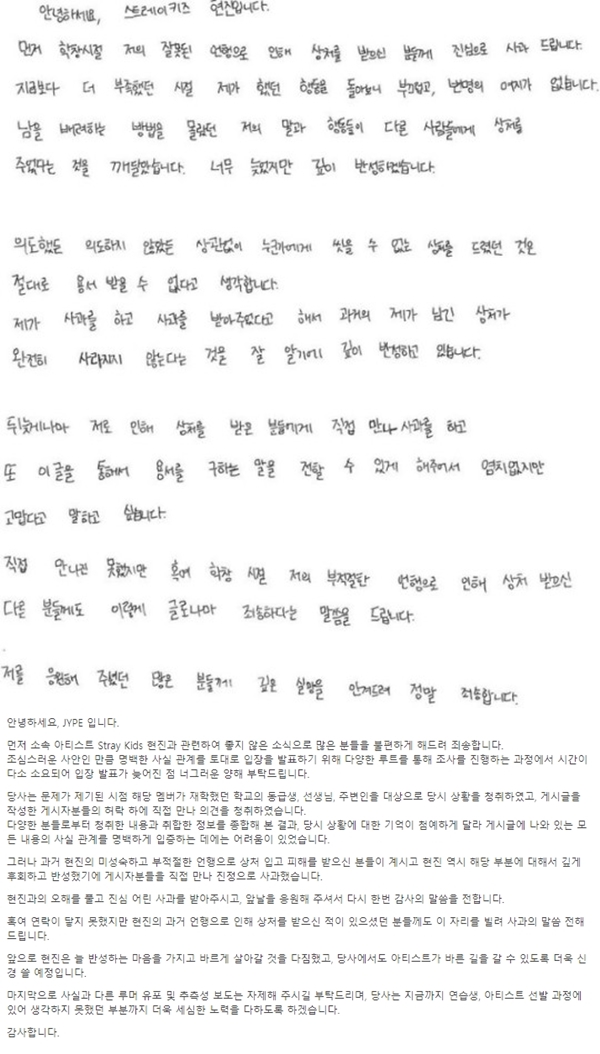 안녕하세요, 스트레이키즈 현진입니다.
먼저 학창시절 저의 잘못된 언행으로 인해 상처를 받으신 분들께 진심으로 사과 드립니다.
지금보다 더 부족했던 시절 제가 했던 행동을 돌아보니 부끄럽고, 변명의 여지가 없습니다.
남을 배려하는 방법을 몰랐던 저의 말과 행동들이 다른 사람들에게 상처를
주었다는 것을 깨달았습니다. 너무 늦었지만 깊이 반성하겠습니다.
의도했든 의도하지 않았든 상관없이 누군가에게 씻을 수 없는 상처를 드렸던 것은
절대로 용서 받을 수 없다고 생각합니다.
제가 사과를 하고 사과를 받아주었다고 해서 과거의 제가 남긴 상처가
완전히 사라지지 않는다는 것을 잘 알기에 깊이 반성하고 있습니다.
뒤늦게나마 저로 인해 상처를 받은 분들에게 직접 만나 사과를 하고
또 이글을 통해서 용서를 구하는 말을 전할 수 있게 해주어서 염치없지만
고맙다고 말하고 싶습니다.
직접 만나진 못했지만 혹여 학창 시절 저의 부적절한 언행으로 인해 상처 받으신
다른 분들께도 이렇게 글로나마 죄송하다는 말씀을 드립니다.
저를 응원해 주셨던 많은 분들께 깊은 실망을 안겨드려 정말 죄송합니다.
안녕하세요, JYPE 입니다.
먼저 소속 아티스트 Stray Kids 현진과 관련하여 좋지 않은 소식으로 많은 분들을 불편하게 해드려 죄송합니다.
조심스러운 사안인 만큼 명백한 사실 관계를 토대로 입장을 발표하기 위해 다양한 루트를 통해 조사를 진행하는 과정에서 시간이
다소 소요되어 입장 발표가 늦어진 점 너그러운 양해 부탁드립니다.
당사는 문제가 제기된 시점 해당 멤버가 재학했던 학교의 동급생, 선생님, 주변인을 대상으로 당시 상황을 청취하였고, 게시글을
작성한 게시자분들의 허락 하에 직접 만나 의견을 청취하였습니다.
다양한 분들로부터 청취한 내용과 취합한 정보를 종합해 본 결과, 당시 상황에 대한 기억이 첨예하게 달라 게시글에 나와 있는 모
든 내용의 사실 관계를 명백하게 입증하는 데에는 어려움이 있었습니다.
그러나 과거 현진의 미성숙하고 부적절한 언행으로 상처 입고 피해를 받으신 분들이 계시고 현진 역시 해당 부분에 대해서 깊게
후회하고 반성했기에 게시자분들을 직접 만나 진정으로 사과했습니다.
현진과의 오해를 풀고 진심 어린 사과를 받아주시고, 앞날을 응원해 주셔서 다시 한번 감사의 말씀을 전합니다.
혹여 연락이 닿지 못했지만 현진의 과거 언행으로 인해 상처를 받으신 적이 있으셨던 분들께도 이 자리를 빌려 사과의 말씀 전해
드립니다.
앞으로 현진은 늘 반성하는 마음을 가지고 바르게 살아갈 것을 다짐했고, 당사에서도 아티스트가 바른 길을 갈 수 있도록 더욱 신
경 쓸 예정입니다.
마지막으로 사실과 다른 루머 유포 및 추측성 보도는 자제해 주시길 부탁드리며, 당사는 지금까지 연습생, 아티스트 선발 과정에
있어 생각하지 못했던 부분까지 더욱 세심한 노력을 다하도록 하겠습니다.
감사합니다.